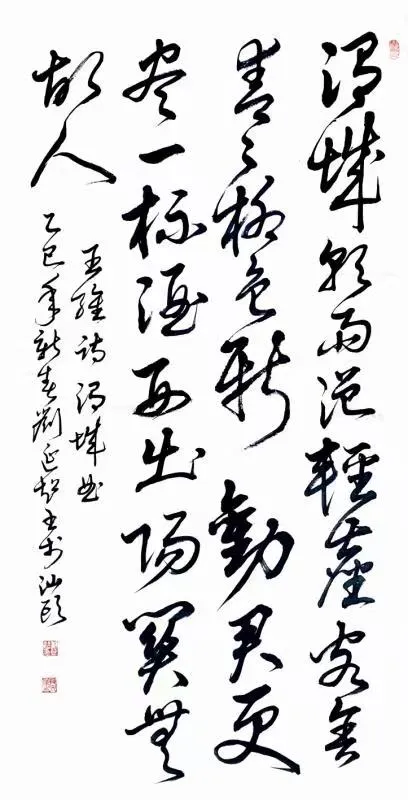 渭城朝雨浥輕塵客舍
青々柳色新勸君更
盡一杯酒西出陽關無
故人
王維詩渭城曲
乙巳年新春劉延书於汕頭